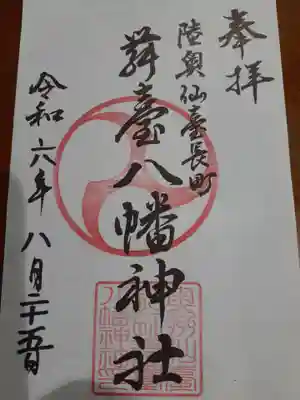 奉拝
陸奥仙臺長町
舞臺八幡神社
令和六年八月二十五日